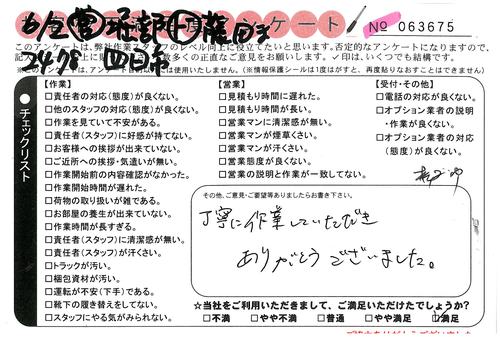 アンケート No 063675
このアンケートは、弊社作業スタッフのレベル向上に役立てたいと思います。否定的なアンケートになりますので、
数多くの正直なご意見をお願いします。✓印は、いくつでも結構です。
四日市
チェックリスト
【作業】
□責任者の対応(態度)が良くない。
□他のスタッフの対応(態度)が良くない。
□作業を見ていて不安がある。
□責任者(スタッフ)に好感が持てない。
□お客様への挨拶が出来ていない。
□ご近所への挨拶・気遣いが無い。
□作業開始前の内容確認がなかった。
□作業開始時間が遅れた。
□荷物の取り扱いが雑である。
□お部屋の養生が出来ていない。
□作業時間が長すぎる。
□責任者(スタッフ)に清潔感が無い。
□責任者(スタッフ)が汗くさい。
□トラックが汚い。
□梱包資材が汚い。
□運転が不安(下手)である。
□靴下の履き替えをしてない。
□スタッフにやる気がみられない。
【営業】
□見積もり時間に遅れた。
□見積もり時間が長い。
□営業マンに清潔感が無い。
□営業マンが煙草くさい。
□営業マンが汗くさい。
□営業態度が良くない。
□営業の説明と作業が一致してない。
【受付・その他】
□電話の対応が良くない。
□オプション業者の説明
・作業が良くない。
□オプション業者の対応
(態度)が良くない。
その他、ご意見・ご要望等ありましたらお書き下さい。
丁寧に作業していただき
ありがとうございました。
☆当社をご利用いただきまして、ご満足いただけたでしょうか?
□不満 □やや不満 □普通 □やや満足 ☑満足